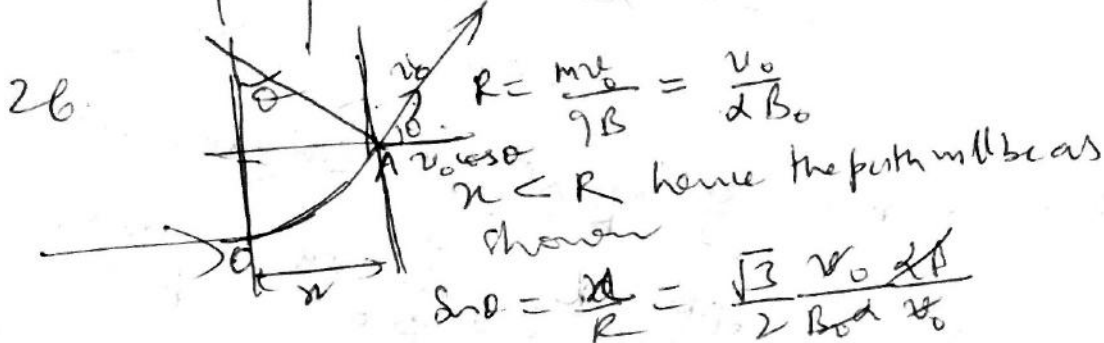 26.
θ
v₀
θ
A
v₀ cosθ
O
x
R = mv₀/qB = v₀/αB₀
x < R hence the path will be as
shown
Sinθ = x/R = √3/2 v₀/B₀α αB/v₀